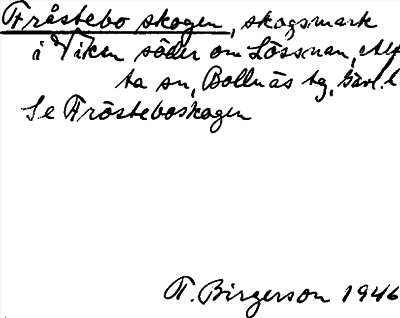 Fråstebo skogen, skogsmark
i Viken söder om Lössnan, Alf
ta sn, Bollnäs tg, Gävl. l
Se Frösteboskogen
T. Birgerson 1946